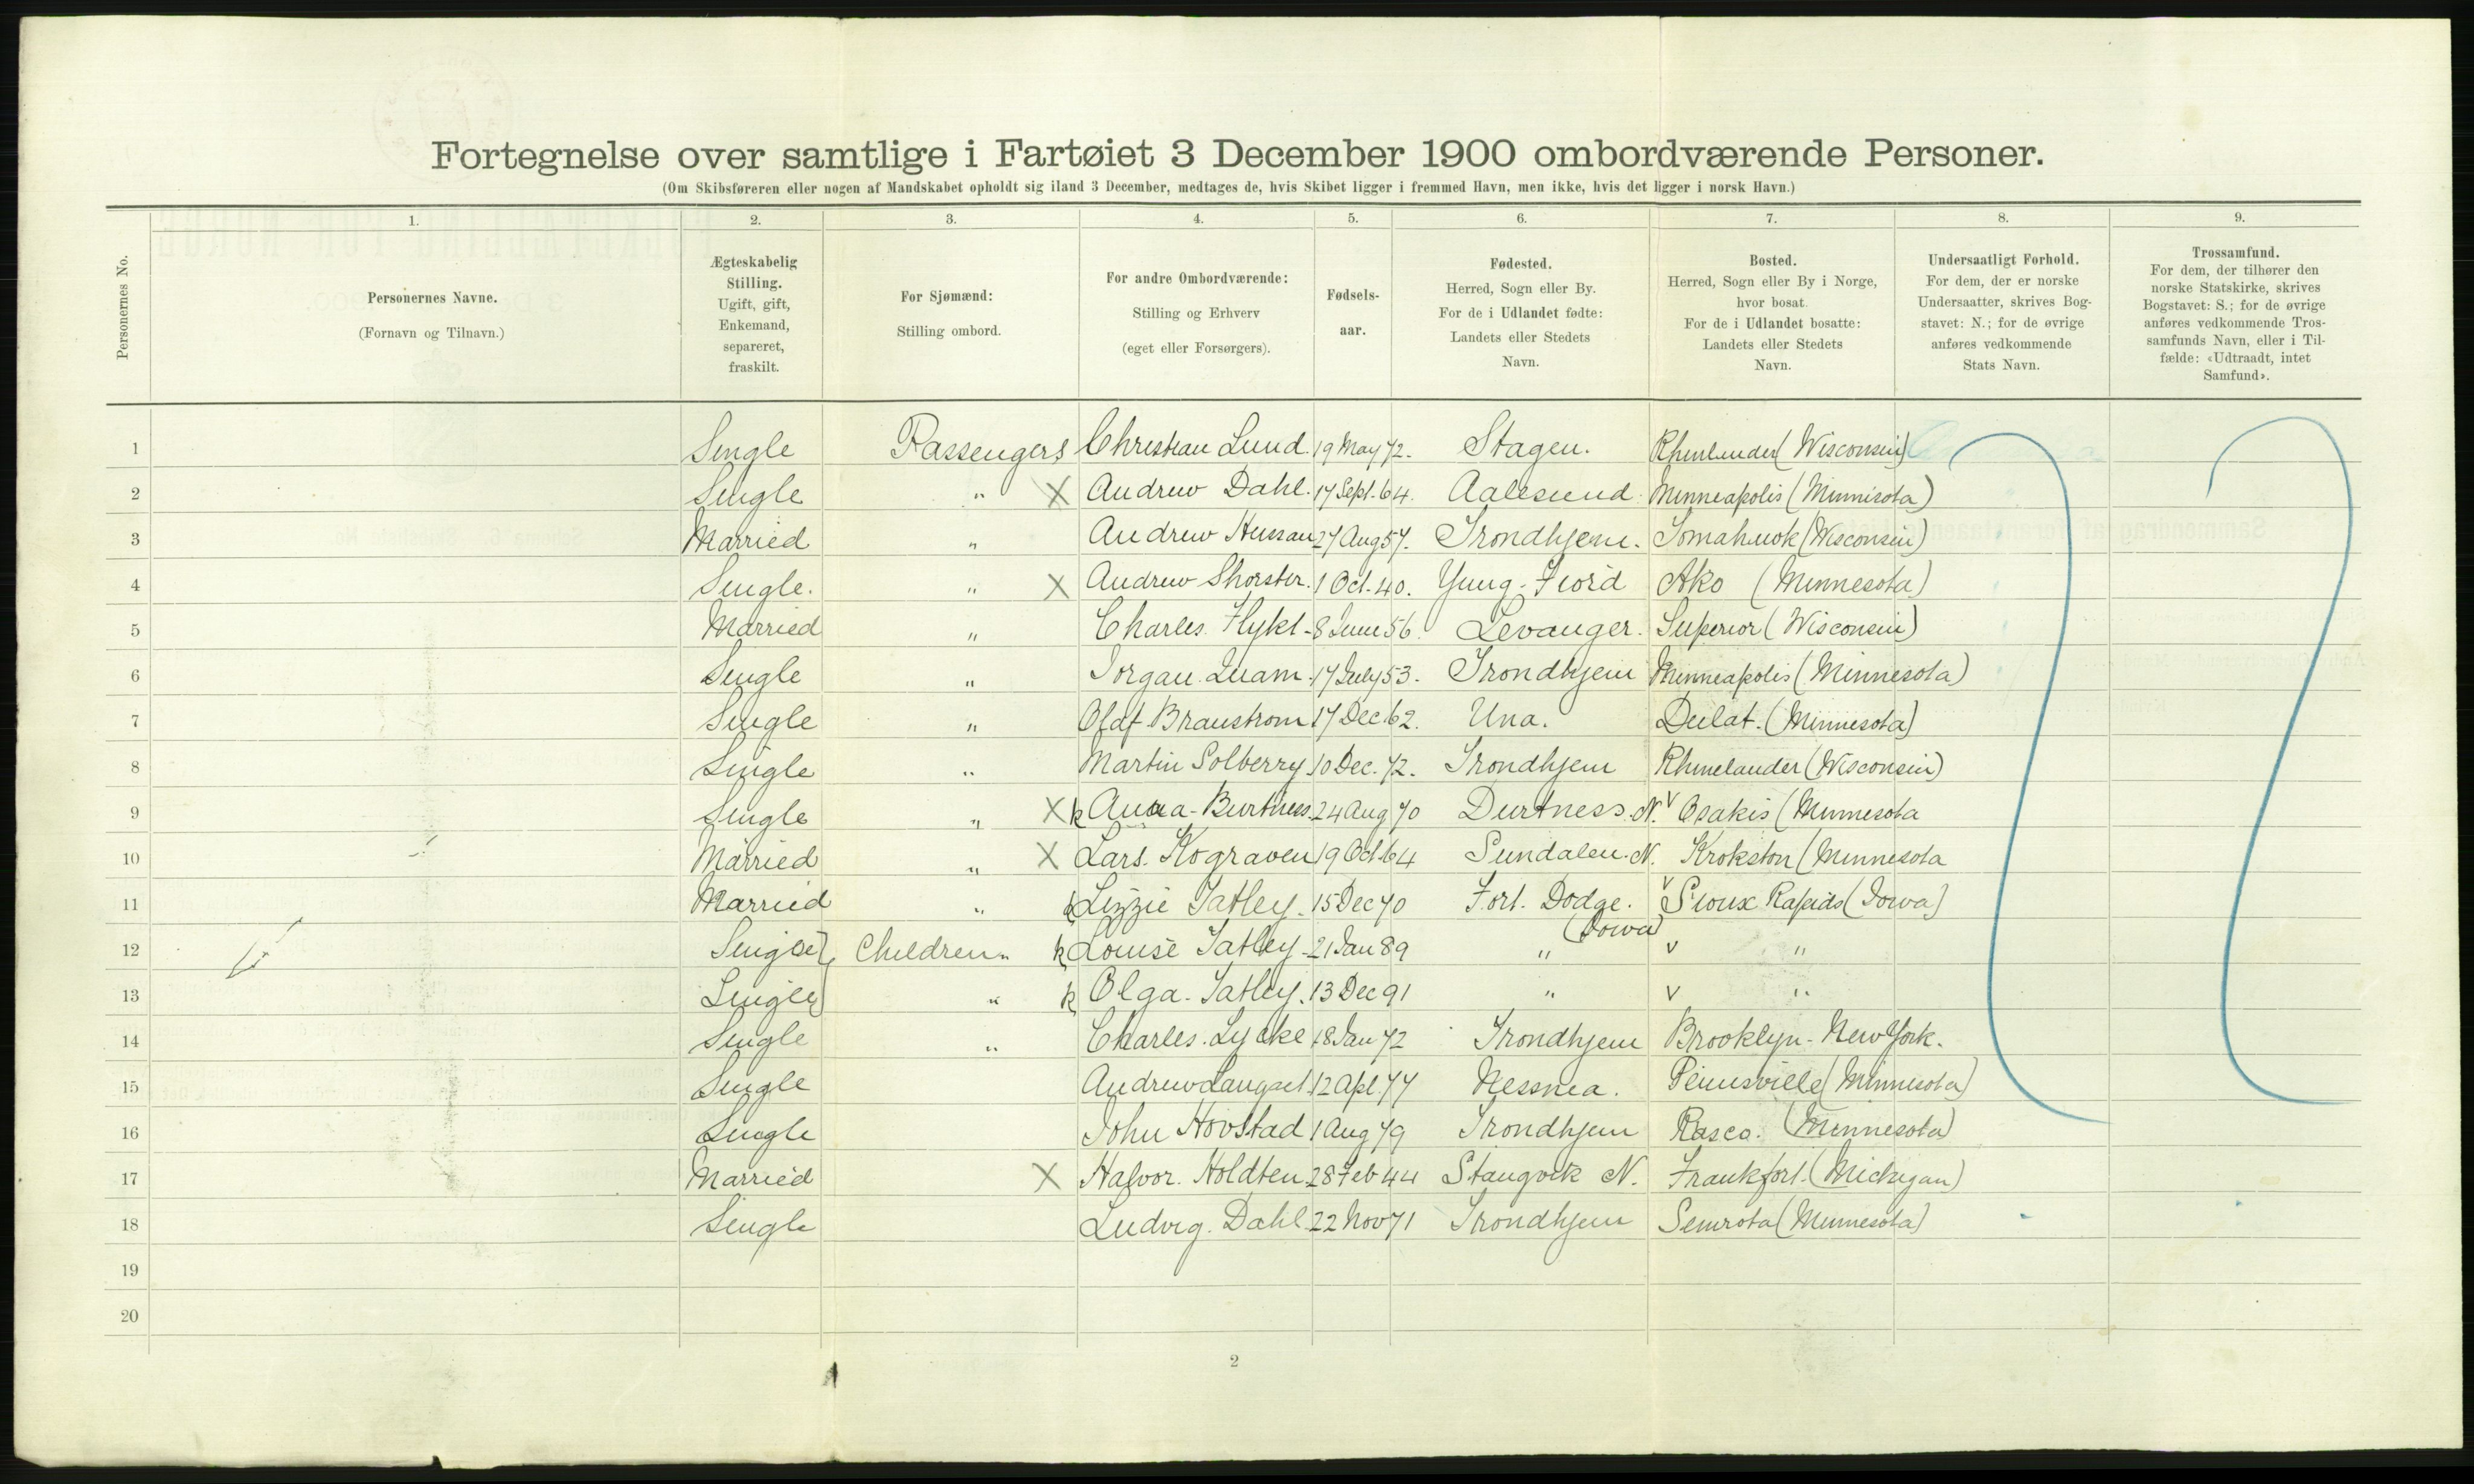 Fortegnelse over samtlige i Fartøiet 3 December 1900 ombordværende Personer.
(Om Skibsføreren eller nogen af Mandskabet opholdt sig iland 3 December, medtages de, hvis Skibet ligger i fremmed Havn, men ikke, hvis det ligger i norsk Havn.)
Personernes No.
1.
Personernes Navne.
(Fornavn og Tilnavn.)
2.
Ægteskabelig
Stilling.
Ugift, gift,
Enkemand,
separeret,
fraskilt.
3.
For Sjømænd:
Stilling ombord.
4.
For andre Ombordværende:
Stilling og Erhverv
(eget eller Forsørgers).
5.
Fødsels-
aar.
6.
Fødested.
Herred, Sogn eller By.
For de i Udlandet fødte:
Landets eller Stedets
Navn.
7.
Bosted.
Herred, Sogn eller By i Norge,
hvor bosat.
For de i Udlandet bosatte:
Landets eller Stedets
Navn.
8.
Undersaatligt Forhold.
For dem, der er norske
Undersaatter, skrives Bog-
stavet: N.; for de øvrige
anføres vedkommende
Stats Navn.
9.
Trossamfund.
For dem, der tilhører den
norske Statskirke, skrives
Bogstavet: S.; for de øvrige
anføres vedkommende Tros-
samfunds Navn, eller i Til-
fælde: «Udtraadt, intet
Samfund».
1 Single Passengers Christian Lund. 19 May 72. Stagen. (Wisconsin)
2 Single " X Andrew Dahl. 17 Sept. 64. Aalesund. Minneapolis (Minnisota)
3 Married " Andrew 27 Aug 57. Trondhjem. (Wisconsin)
4 Single. " X Andrew Shorster. 1 Oct. 40. Yung-Fiord Ako (Minnesota)
5 Married " Charles. Flykt - 8 June 56. Levanger. Superior (Wisconsin)
6 Single " Jorgan. 17 July 53. Trondhjem Minneapolis (Minnesota)
7 Single " Olaf Braustrom 17 Dec. 62. Una. Dulat. (Minnesota)
8 Single " Martin Solberry 10 Dec. 72. Trondhjem Rhinelander (Wisconsin)
9 Single " X k Anna - Burtness. 24 Aug 70 Durtness. N. v Osakis (Minnesota
10 Married " X Lars. Kograven 19 Oct 64 Sundalen. N. Krokston (Minnesota
11 Married " k Lizzie Tatley. 15 Dec 70 Fort. Dodge. v Sioux Rapids (Iowa)
(Iowa)
12 Single Children " k Louise Tatley - 21 Jan 89 " v "
13 Single " k Olga - Tatley. 13 Dec 91 " v "
14 Single " Charles. Lycke 18 Jan 72 Trondhjem Brooklyn - New York.
15 Single Andrew Langset 12 Apl. 77 Nessnea. (Minnesota)
16 Single John Hovstad 1 Aug 79 Trondhjem Rasca. (Minnesota)
17 Married X Halvor. Holdten 28 Feb 44 Stangvik N. Frankfort. (Michigan)
18 Single Ludvig. Dahl 22 Nov 71 Trondhjem Semrota (Minnesota)
19
20
2